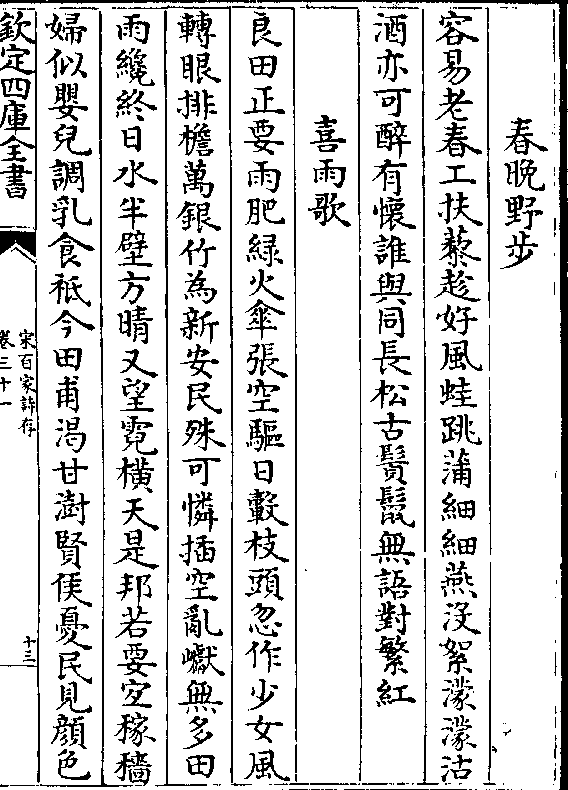 春晚野步
容易老春工扶藜趁好風蛙跳蒲細細燕没絮濛濛沽
酒亦可醉有懷誰與同長松古鬢鬛無語對繁紅
喜雨歌
良田正要雨肥緑火傘張空驅日轂枝頭忽作少女風
轉眼排檐萬銀竹為新安民殊可憐插空亂巘無多田
雨纔終日水半壁方晴又望霓横天是邦若要定稼穡
婦似嬰兒調乳食祗今田甫渴甘澍賢侯憂民見顔色
欽定四庫全書
宋百家詩存
卷三十一
十三